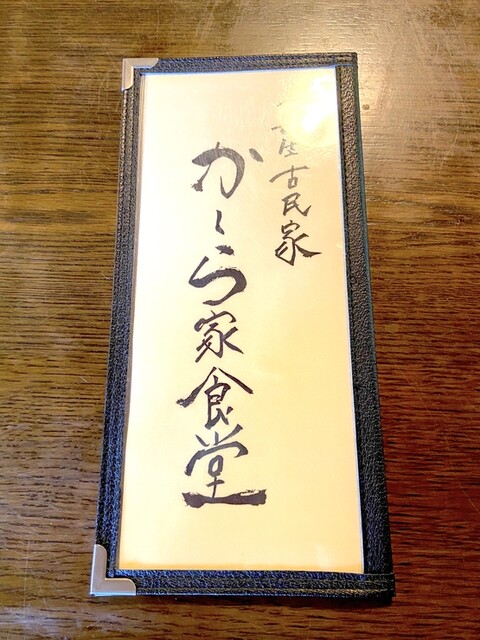 古民家
かくら家食堂